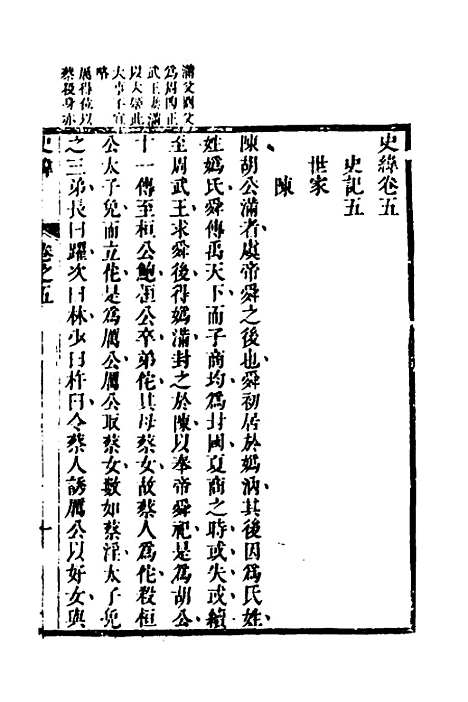 史緯卷五
史記五
世家
陳
陳胡公滿者虞帝舜之後也舜初居於媯汭其後因為氏姓
姓媯氏舜傳禹天下而子商均為封國夏商之時或失或續
至周武王求舜後得媯滿封之於陳以奉帝舜祀是為胡公
十一傳至桓公鮑桓公卒弟佗其母蔡女故蔡人為佗殺桓
公太子免而立佗是為厲公厲公取蔡女數如蔡淫太子免
之三弟長曰躍次曰林少曰杵臼令蔡人誘厲公以好女與
滿父閼父
為周陶正
武王妻滿
以大姬此
大事不宜
略
厲得位以
蔡殺身亦
史緯
卷之五